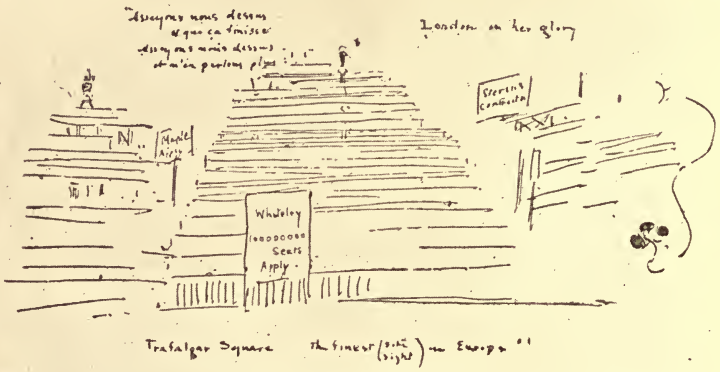 "Asseyons nous dessus
et que ça finisse
Asseyons nous dessus
et n'en parlons plus"
London in her glory
Maple
Stevens
contractor
Whiteley
100000000
Seats
Apply.
Trafalgar Square The finest (site
sight) in Europe"!